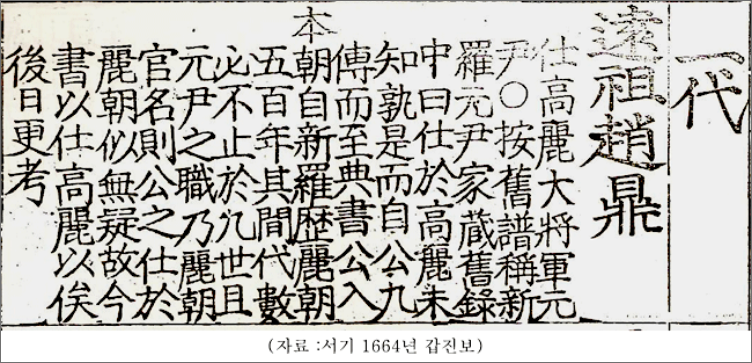 一代
遠祖趙鼎
仕高麗大將軍元
尹○按舊譜稱新
羅元尹家藏舊錄
中曰仕於高麗未
知孰是而自公九
傳而至典書公入
本朝自新羅歷麗朝
五百年其間代數
必不止於九世且
元尹之職乃麗朝
官名則公之仕於
麗朝似無疑故今
書以仕高麗以俟
後日更考
(자료 :서기 1664년 갑진보)